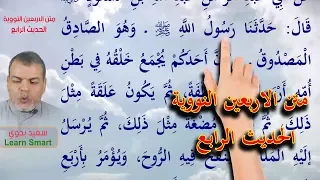 متن الاربعين النووية
الحديث الرابع
قَالَ: حَدَّثَنَا رَسُولُ اللَّهِ ﷺ . وَهُوَ الصَّادِقُ
الْمَصْدُوقُ أَحَدَكُمْ يُجْمَعُ خَلْقُهُ فِي بَطْنِ
أُمِّهِ ثُمَّ يَكُونُ عَلَقَةً مِثْلَ
ذَلِكَ، ثُمَّ مُضْغَةً مِثْلَ ذَلِكَ، ثُمَّ يُرْسَلُ
إِلَيْهِ فِيهِ الرُّوحَ، وَيُؤْمَرُ بِأَرْبَعِ
متن الاربعين النووية
الحديث الرابع
سعيد بدوي
Learn Smart